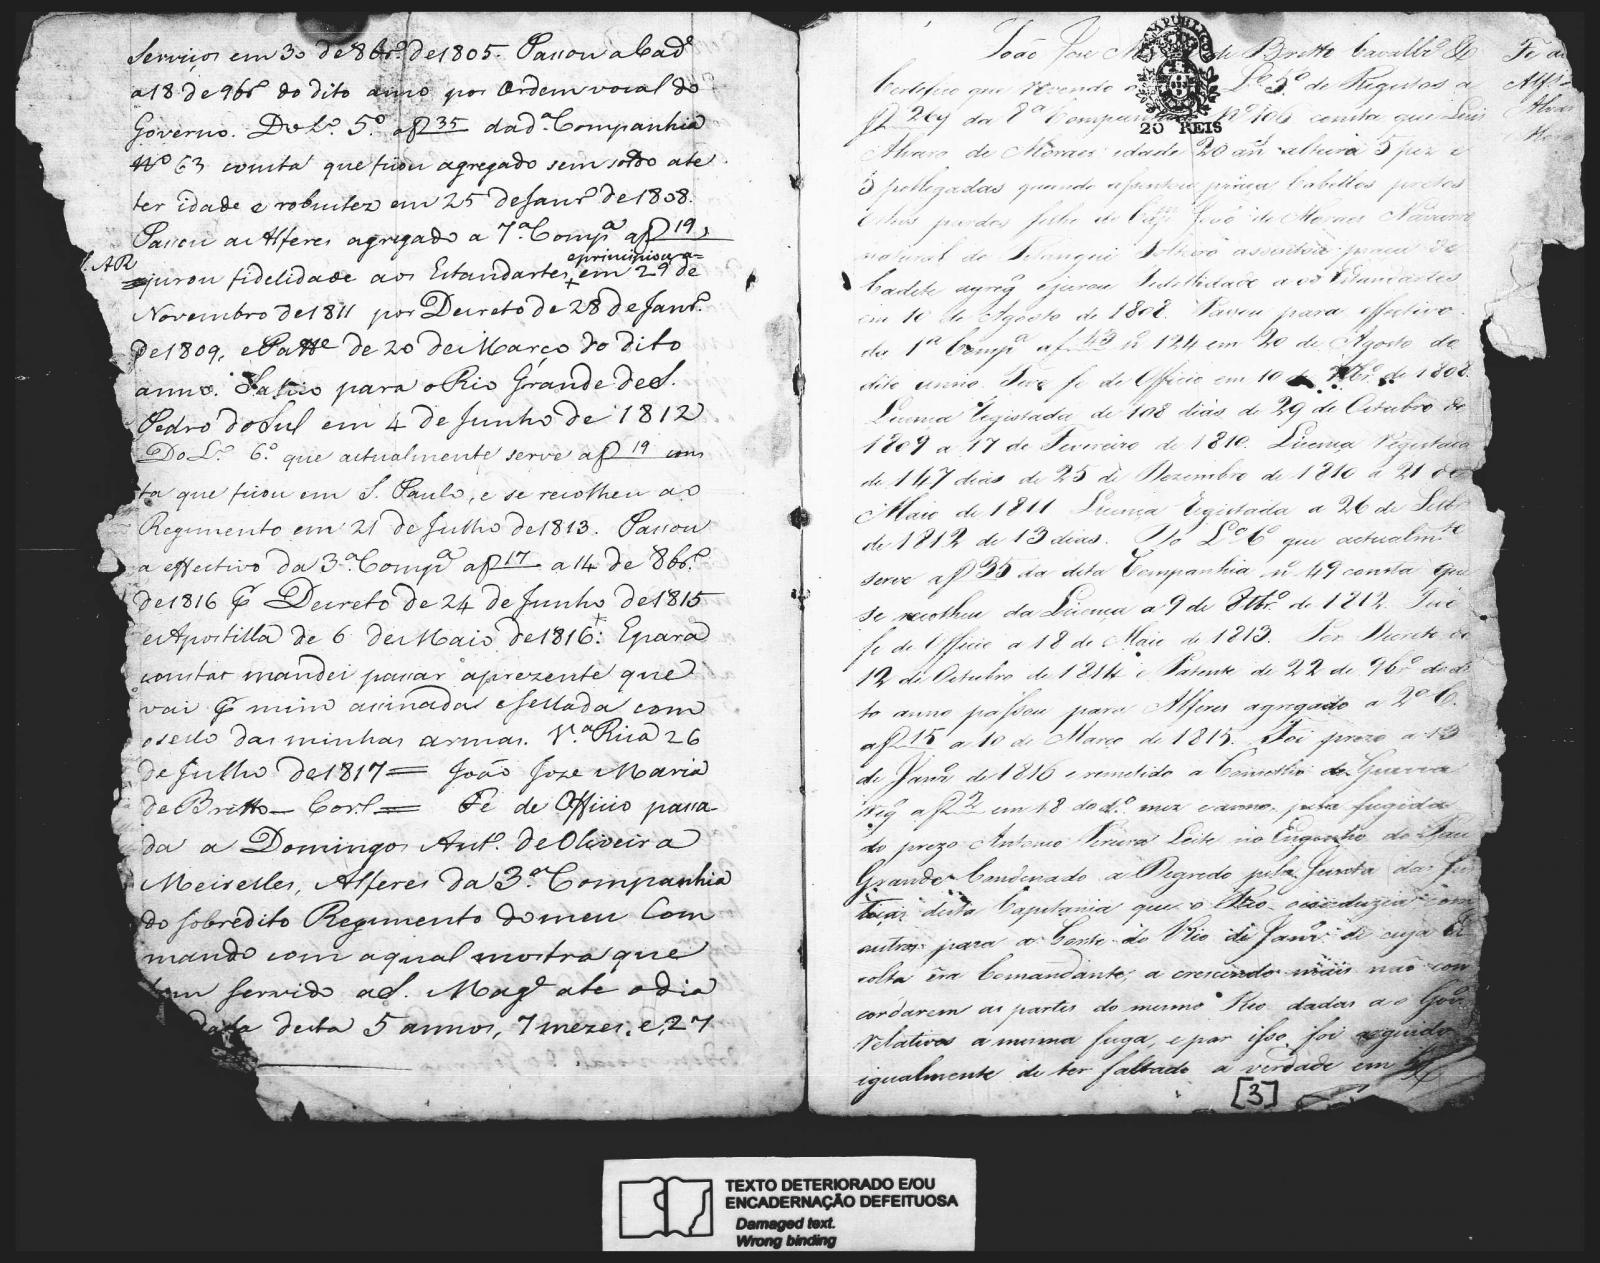 Serviços em 30 de 8br.º de 1805. Passou a Cad.e
a 18 de 9br.º do dito anno por ordem vocal do
Governo. Do L.º 5.º a f 35 da d.ª Companhia
N.º 63 consta que ficou agregado sem soldo ate
ter idade e robustez em 25 de Janr.º de 1808.
Passou a Alferes agregado a 7.ª Comp.ª a f 19,
e principiou a=
e jurou fidelidade aos Estandartes, em 29 de
Novembro de 1811 por Decreto de 28 de Janr.º
de 1809, e Patte de 20 de Março do dito
anno. Sahio para o Rio Grande de S.
Pedro do Sul em 4 de Junho de 1812
Do L.º 6.º que actualmente serve a f 19 cons
ta que ficou em S. Paulo, e se recolheu ao
Regimento em 21 de Julho de 1813. Passou
a effectivo da 3.ª Comp.ª a f 17 a 14 de 8br.º
de 1816 Decreto de 24 de Junho de 1815
e Apostilla de 6 de Maio de 1816: E para
constar mandei passar a prezente que
vai mim assinada e sellada com
o sello das minhas armas. V.ª Rica 26
de Julho de 1817 = João Joze Maria
de Britto - Cor.l = Fé de Officio passa
da a Domingos Ant.º de Oliveira
Meirelles, Alferes da 3.ª Companhia
do sobredito Regimento do meu Com
mando com a qual mostra que
tem servido a S. Mag.e ate o dia
da data desta 5 annos, 7 mezes, e 27
João Joze de Britto Cavallr.º
Certifico que revendo o L.º 5.º de Registos a
f 269 da 8.ª Companhia N.º 106 consta que Luis
20 REIS
Alvaro de Moraes idade 20 an.s altura 5 pez e
3 pollegadas quando assentou praça Cabellos pretos
Olhos pardos filho do Cap.m José de Moraes Navarro
natural do solteiro assentou praça de
Cadete agreg.º e jurou Fidellidade aos Estandartes
em 10 de Agosto de 1808. Passou para effectivo
da 1.ª Comp.ª a f 43 n.º 124 em 20 de Agosto do
dito anno. Teve fe de Officio em 10 de de 1808.
Licença registada de 108 dias de 29 de Outubro de
1809 a 17 de Fevereiro de 1810. Licença Registada
de 147 dias de 25 de Dezembro de 1810 a 21 de
Maio de 1811 Licença registada a 26 de Setbr.º
de 1812 de 13 dias. Do L.º 6.º que actualm.te
serve a f 35 da dita Companhia n.º 49 consta que
se recolheu da Licença a 9 de 8br.º de 1812. Teve
fe de Officio a 18 de Maio de 1813. Por Decreto de
12 de Outubro de 1814 e Patente de 22 de 9br.º do di
to anno passou para Alferes agregado a 2.ª C.
a f 15 a 10 de Março de 1815. Foi prezo a 13
de Janr.º de 1816 e remetido a Conselho de Guerra
a f 2 em 18 do d.º mez e anno pela fugida
do prezo Antonio Pereira Leite no Engenho do Pau
Grande Condenado a Degredo pela Junta das Jus
tiças desta Capitania que o Reo conduzia com
outros para a Corte do Rio de Janr.º de cuja Es
colta era Comandante; a crescendo mais não con
cordarem as partes do mesmo Reo dadas ao Gov.º
relativos a mesma fuga, e por isso foi arguido
igualmente de ter faltado a verdade em
[3]
TEXTO DETERIORADO E/OU
ENCADERNAÇÃO DEFEITUOSA
Damaged text.
Wrong binding